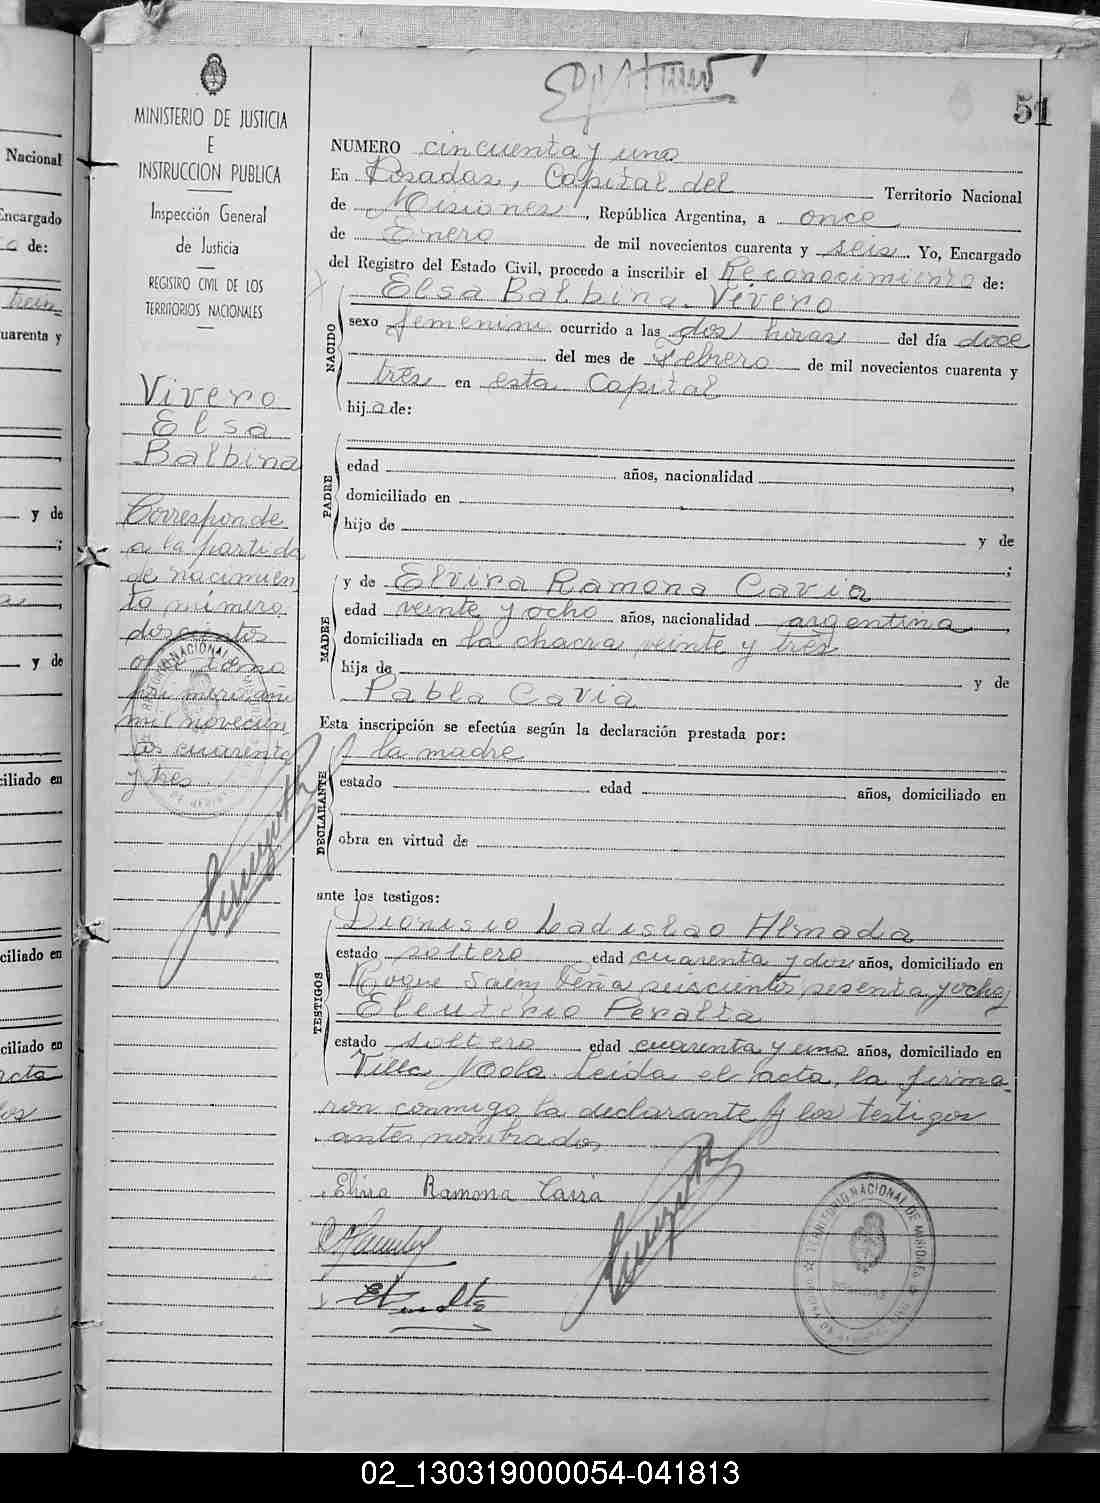 51
MINISTERIO DE JUSTICIA
E
INSTRUCCION PUBLICA
Inspección General
de Justicia
REGISTRO CIVIL DE LOS
TERRITORIOS NACIONALES
Vivero
Elsa
Balbina
Corresponde
a la partida
de nacimien
to número
doscientos
mil novecien
tos cuarenta
y tres
NUMERO cincuenta y uno
En Posadas, Capital del Territorio Nacional
de Misiones, República Argentina, a once
de Enero de mil novecientos cuarenta y seis. Yo, Encargado
del Registro del Estado Civil, procedo a inscribir el Reconocimiento de:
Elsa Balbina Vivero
NACIDO
sexo femenino ocurrido a las dos horas del día doce
del mes de Febrero de mil novecientos cuarenta y
tres en esta Capital
hija de:
PADRE
edad años, nacionalidad ,
domiciliado en
hijo de y de
;
MADRE
y de Elvira Ramona Cavia
edad veinte y ocho años, nacionalidad argentina,
domiciliada en la chacra veinte y tres
hija de y de
Pabla Cavia
Esta inscripción se efectúa según la declaración prestada por:
DECLARANTE
la madre
estado edad años, domiciliado en
obra en virtud de
ante los testigos:
TESTIGOS
Dionisio Ladislao Almada
estado soltero edad cuarenta y dos años, domiciliado en
Roque Saenz Peña seiscientos sesenta y ocho y
Eleuterio Peralta
estado soltero edad cuarenta y uno años, domiciliado en
Villa Mola. Leida el acta, la firma-
ron conmigo la declarante y los testigos
antes nombrados
Elvira Ramona Cavia
TERRITORIO NACIONAL DE MISIONES
Nacional
Encargado
de:
cuarenta y
y de
;
y de
ciliado en
ciliado en
ciliado en
acta
02_130319000054-041813